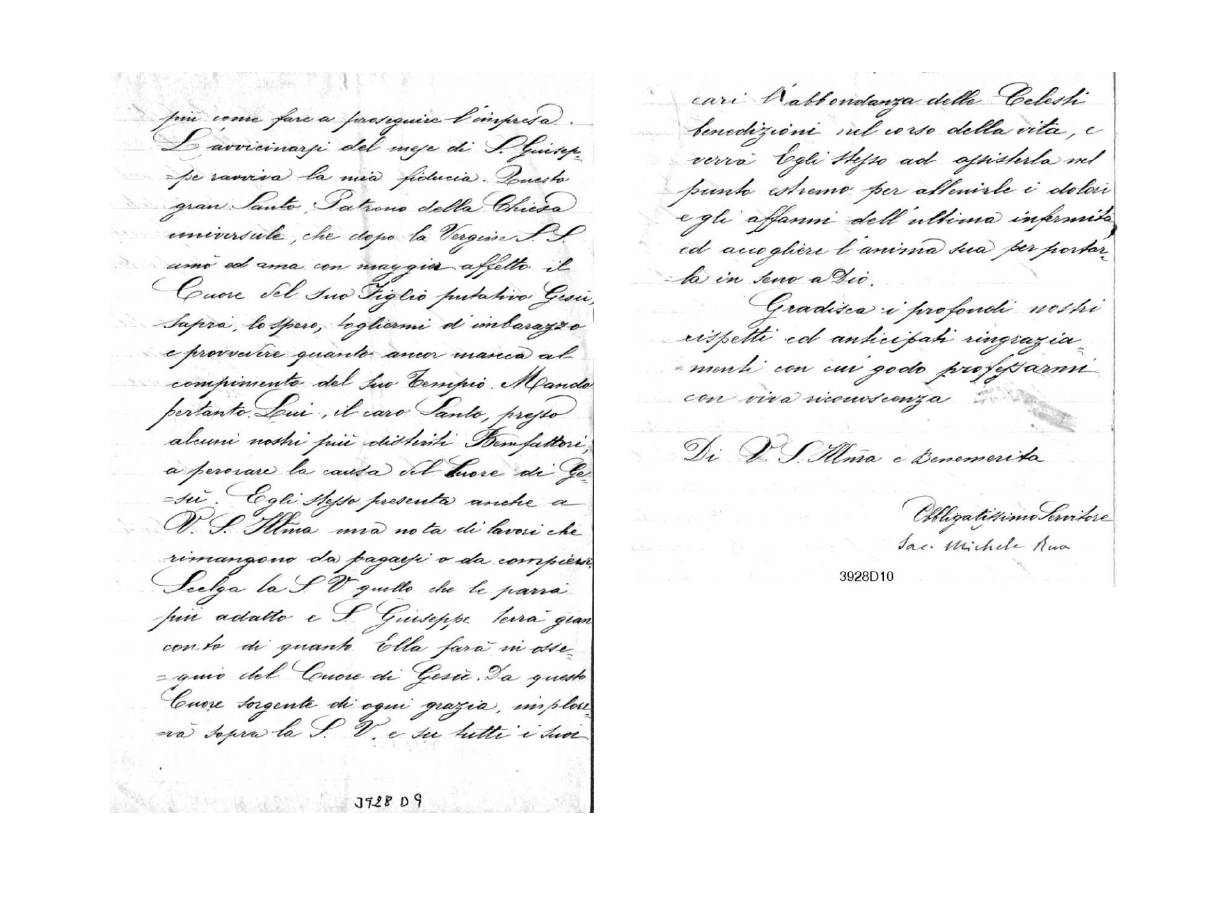 più come fare a proseguire l'impresa.
L'avvicinarsi del mese di S. Giusep=
=pe ravviva la mia fiducia. Questo
gran Santo, Patrono della Chiesa
universale, che dopo la Vergine S.S.
amò ed ama con maggior affetto il
Cuore del suo Figlio putativo Gesù,
saprà, lo spero, togliermi d'imbarazzo
e provvedere quanto ancor manca al
compimento del suo Tempio. Mando
pertanto Lui, il caro Santo, presso
alcuni nostri più distinti Benefattori,
a perorare la causa del Cuore di Ge=
=sù. Egli stesso presenta anche a
V. S. Illma una nota di lavori che
rimangono da pagarsi o da compiersi.
Scelga la S. V. quello che le parrà
più adatto e S. Giuseppe terrà gran
conto di quanto Ella farà in osse=
=quio del Cuore di Gesù. Da questo
Cuore sorgente di ogni grazia, implore=
=rà sopra la S. V. e su tutti i suoi
3928 D 9
cari l'abbondanza delle Celesti
benedizioni nel corso della vita, e
verrà Egli stesso ad assisterla nel
punto estremo per allenirle i dolori
e gli affanni dell'ultima infermità,
ed accogliere l'anima sua per portar=
la in seno a Dio.
Gradisca i profondi nostri
rispetti ed anticipati ringrazia=
=menti con cui godo professarmi
con viva riconoscenza
Di V. S. Illma e Benemerita
Obbligatissimo Servitore
Sac. Michele Rua
3928D10